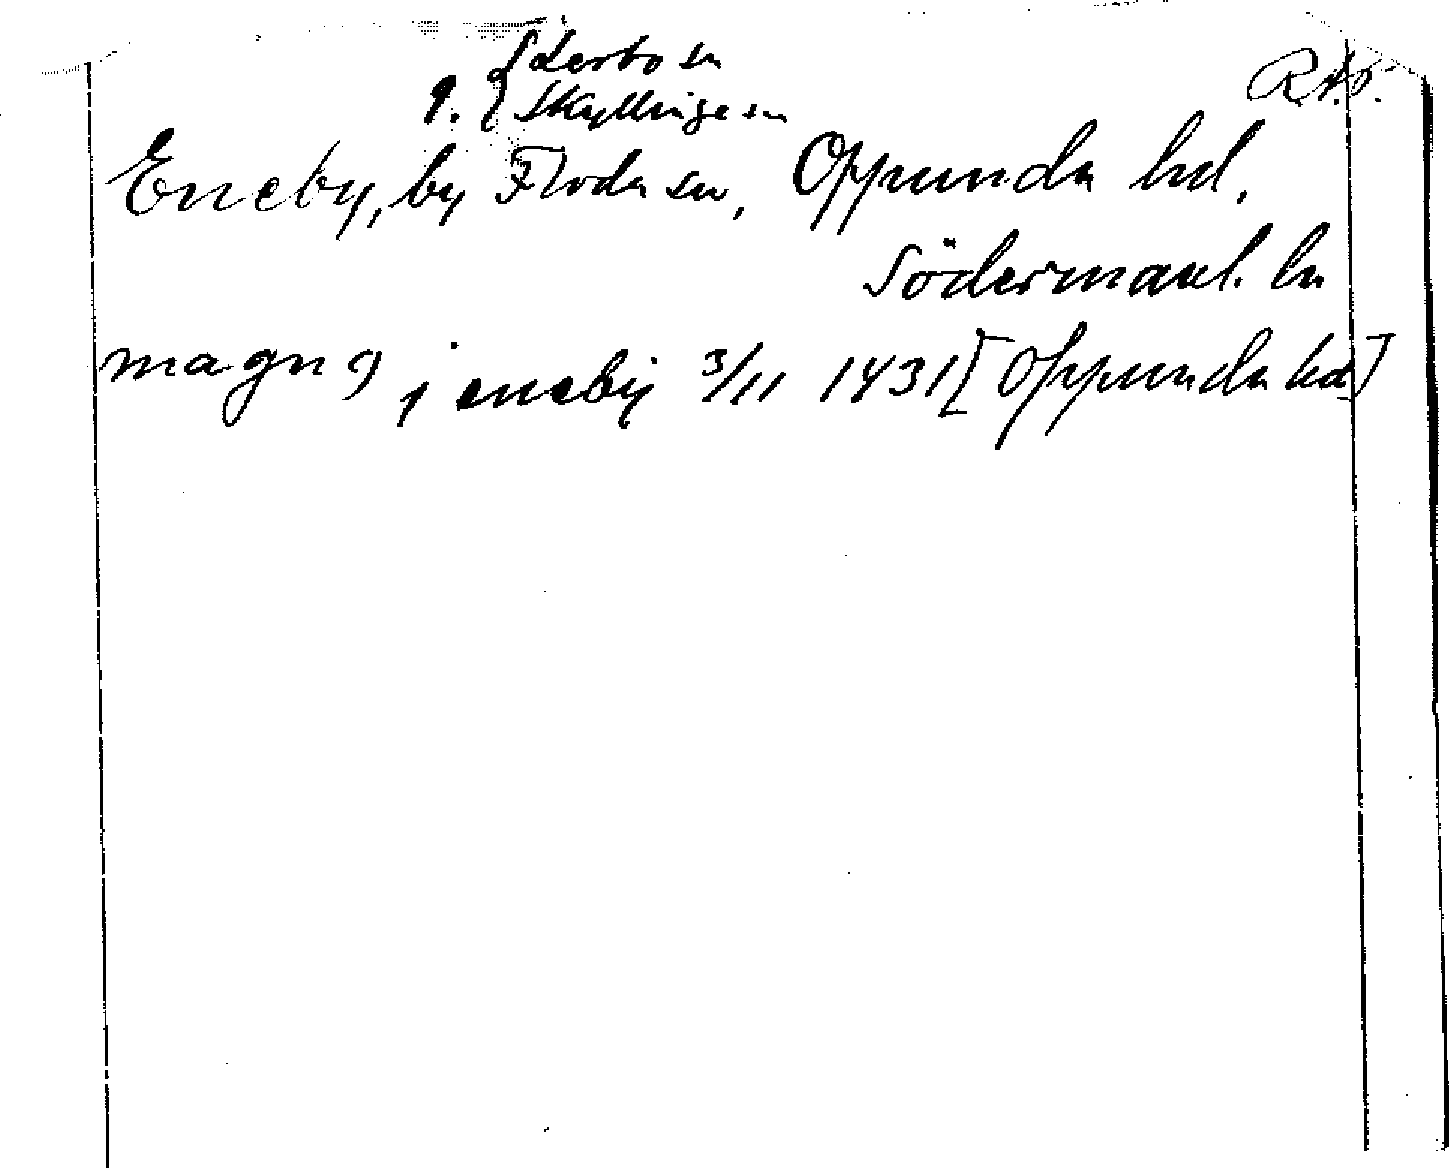 Österbo sn
R.A.P.
9. { Skyllinge sn
Eneby, by Floda sn, Oppunda hd,
Södermanl. ln
magnꝯ j enebij 3/11 1431 [Oppunda hd]